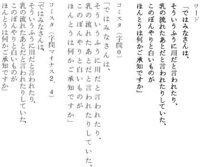 ワード
「ではみなさんは、
そういうふうに川だと言われたり、
乳の流れたあとだと言われたりしていた、
このぼんやりと白いものが
ほんとうは何かご承知ですか」
コミスタ（字間0）
「ではみなさんは、
そういうふうに川だと言われたり、
乳の流れたあとだと言われたりしていた、
このぼんやりと白いものが
ほんとうは何かご承知ですか」
コミスタ（字間マイナス2.4）
「ではみなさんは、
そういうふうに川だと言われたり、
乳の流れたあとだと言われたりしていた、
このぼんやりと白いものが
ほんとうは何かご承知ですか」